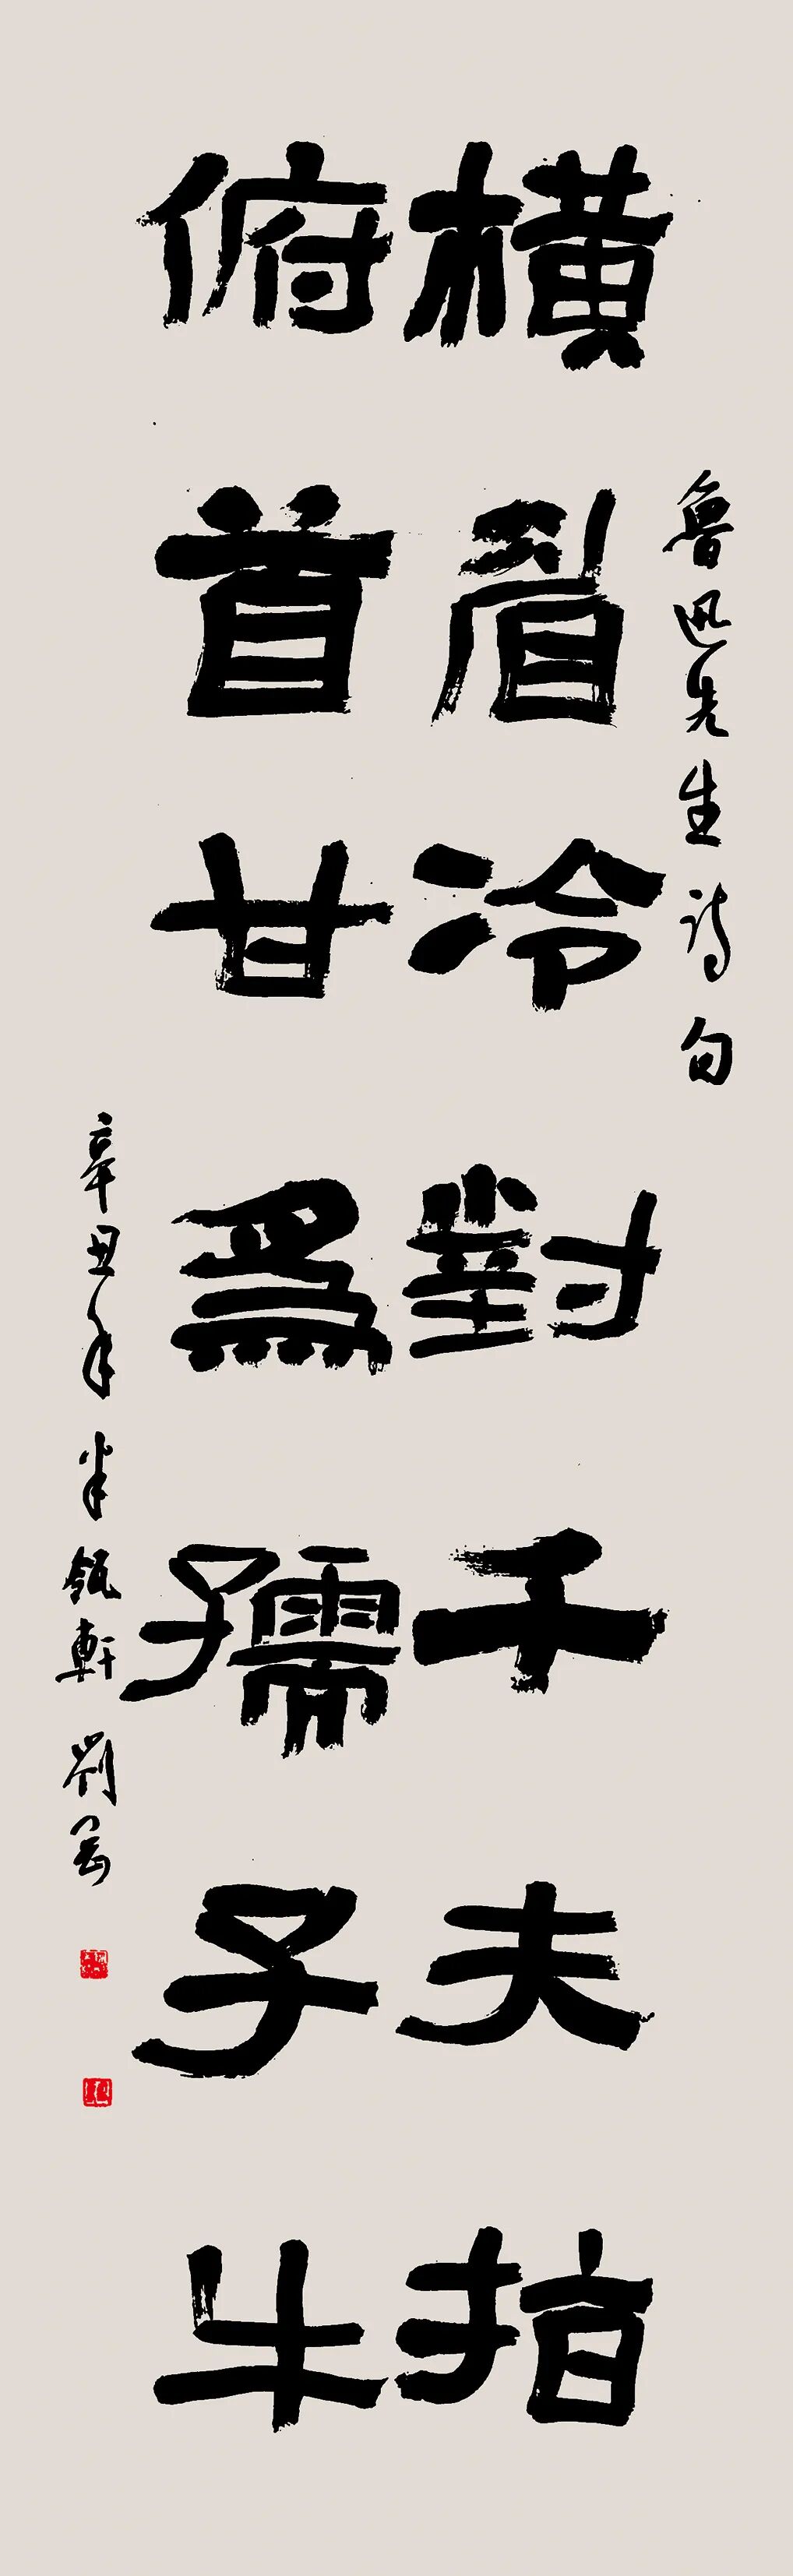 魯迅先生詩句
橫眉冷對千夫指
俯首甘為孺子牛
辛丑年半瓴軒劉